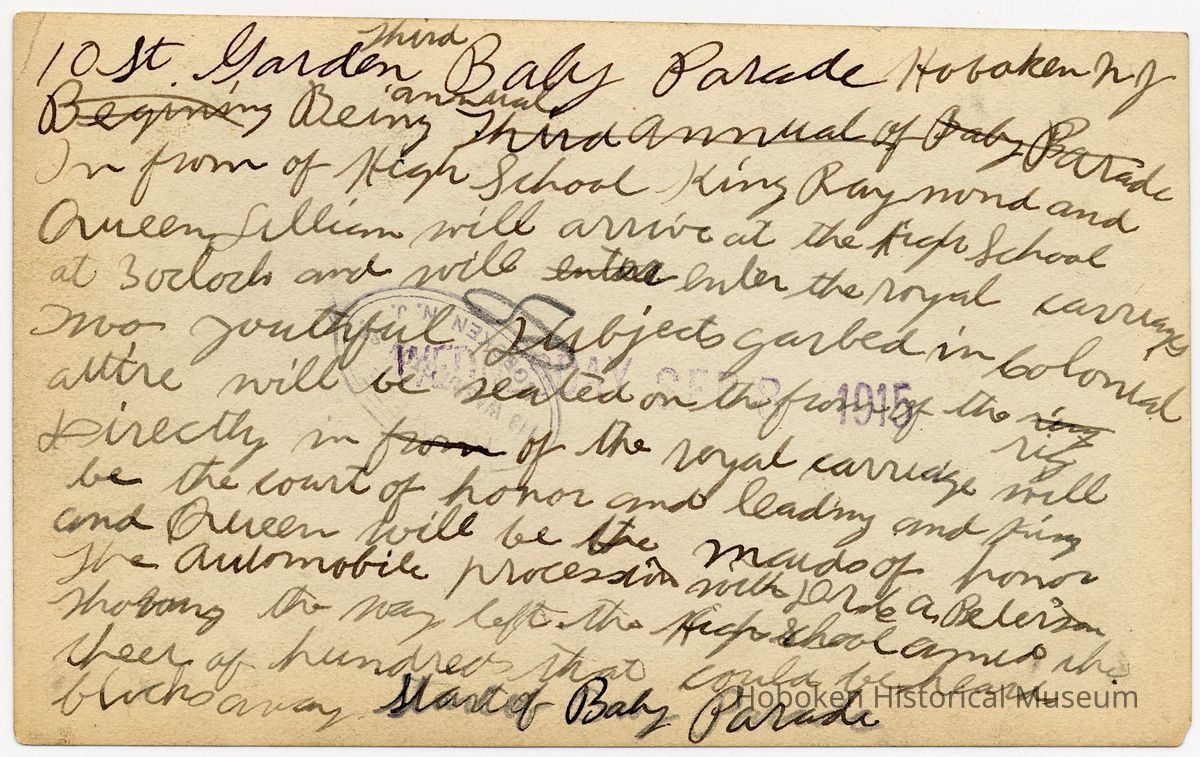 10 St. Garden Third Baby Parade Hoboken N J
Begining Being annual Third annual of Baby Parade
In from of High School King Raymond and
Queen Lillian will arrive at the High School
at 3 oclock and will enter the royal carriages
Two youthful Subjects garbed in Colonial
attire will be seated on the front of the ring rig
Directly in from of the royal carriage will
be the court of honor and leading and King
and Queen will be the maids of honor
The Automobile procession with Peterson
showing the way left the High School amid the
cheer of hundreds that could be heard
blocks away Start of Baby Parade
HOBOKEN N. J.
WASHINGTON
WEDNESDAY SEP 8 1915
Hoboken Historical Museum